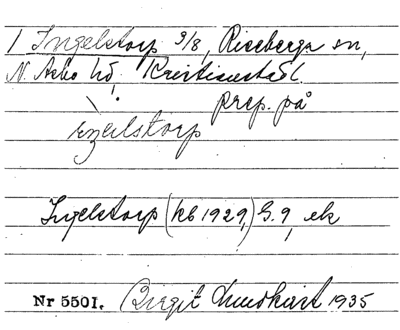 1 Ingelstorp 9/8, Riseberga sn,
N. Åsbo hd, Kristianstads l.
prep. på
Ingelstorp (kb 1929,) G. 9, ek
Nr 5501. Birgit Lundkvist 1935